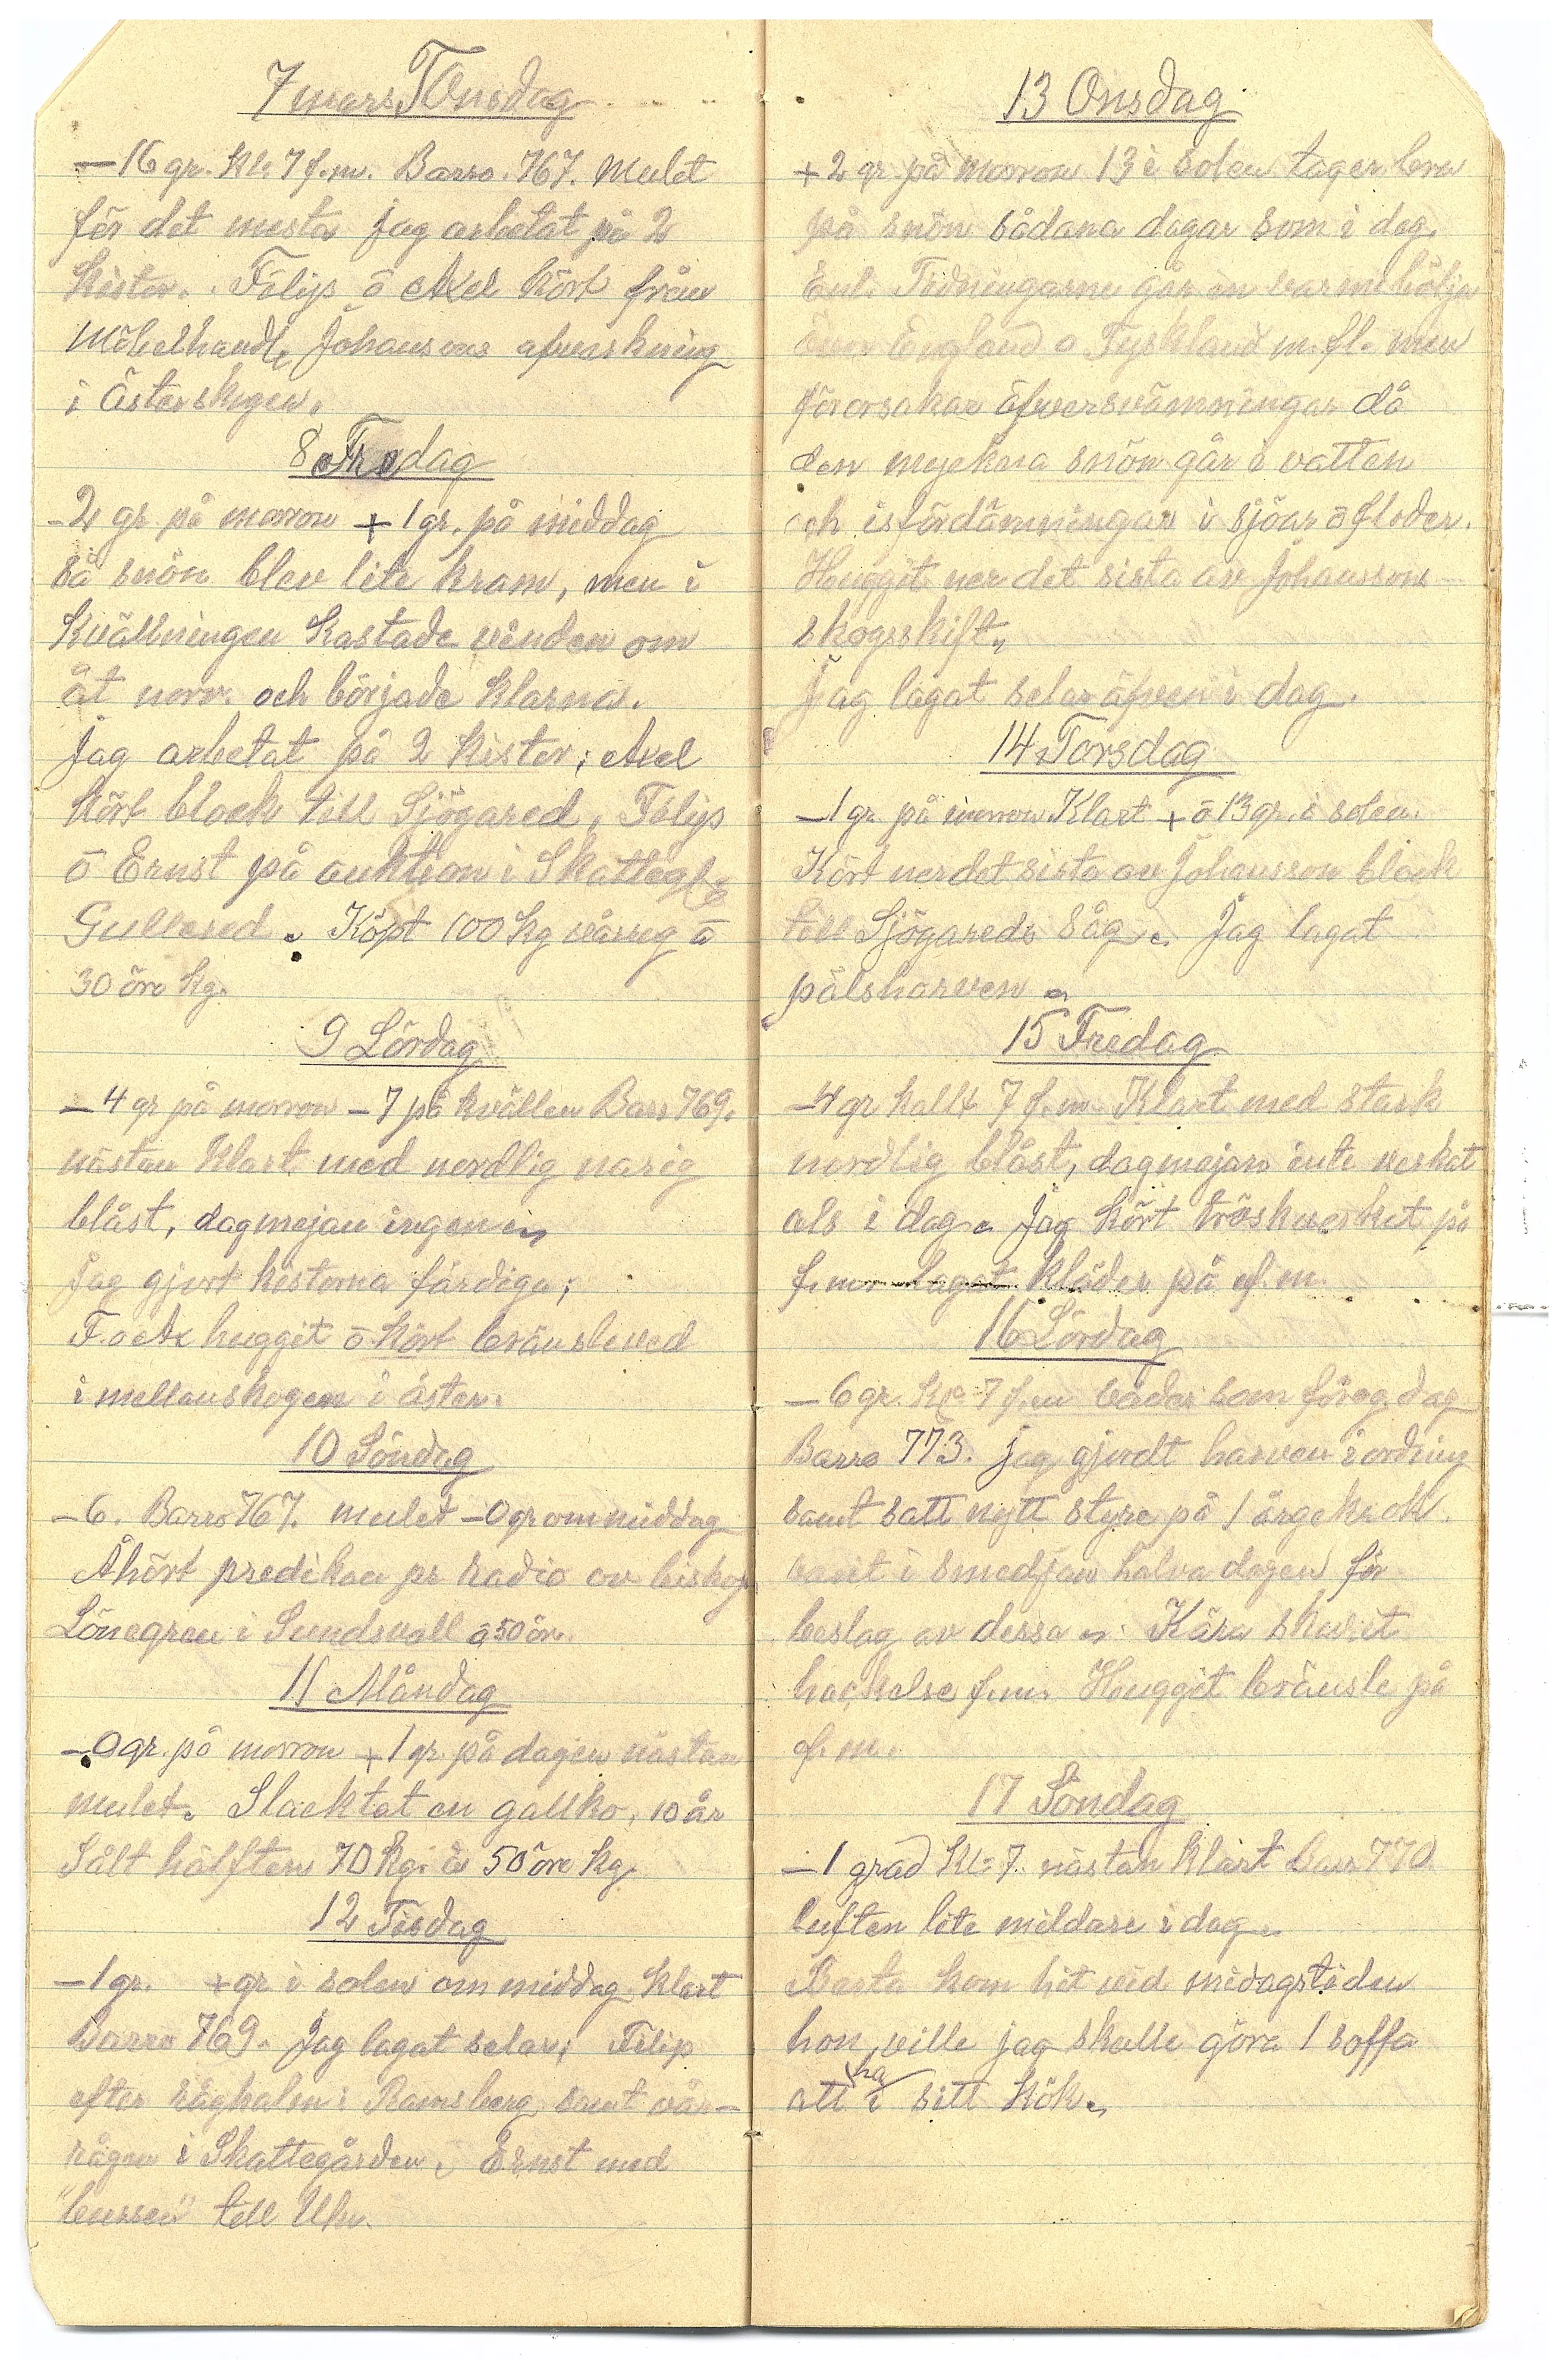 7 mars TOnsdag
-16 gr. Kl. 7 f.m. Barro. 767. Mulet
för det mesta jag arbetat på 2
kistor. Filip ō Axel kört från
Möbelhandl. Johansons afverkning
i Österskogen.
8 Fredag
-2 gr på morron +1 gr. på middag
så snön blev lite kram, men i
Kvällningen kastade vinden om
åt norr. och började klarna.
Jag arbetat på 2 kistor; Axel
kört block till Sjögared, Filip
ō Ernst på auktion i Skatteg.
Gullered. Köpt 100 kg vårrg ā
30 öre kg.
9 Lördag
-4 gr på morron -7 på kvällen Barr 769.
nästan klart med nordlig narig
blåst, dagmejan ingen
Jag gjort kistorna färdiga;
F. o Ax huggit ō kört bränsleved
i mellanskogen i öster.
10 Söndag
-6. Barro 767. mulet -0 gr om middag
Åhört predikan pr radio av biskop
Lönegren i Sundsvall ā 50 ör.
11 Måndag
-0 gr. på morron +1 gr. på dagen nästan
mulet. Slacktat en gallko, 10 år
Sålt hälften 70 kg. à 50 öre kg.
12 Tisdag
-1 gr. +gr i solen om middag klart
Barro 769. Jag lagat selar; Filip
efter råghalm i Ramsberg samt vår-
rågen i Skattegården. Ernst med
"bussen" till Uhn.
13 Onsdag
+2 gr på morron 13 i solen tager bra
på snön sådana dagar som i dag.
Enl. Tidningarne går en varmebölja
över England o Tyskland m.fl. men
förorsakar öfversvämningar då
den myckna snön går i vatten
och isfördämningar i sjöar ō floder.
Huggit ner det sista av Johanssons
skogsskift.
Jag lagat selar äfven i dag.
14 Torsdag
-1 gr på morron Klart + ō 13 gr. i solen.
Kört ner det sista av Johansson block
till Sjögareds Såg. Jag lagat
pålsharven
15 Fredag
-4 gr kallt 7 f.m. Klart med stark
nordlig blåst, dagmejan inte verkat
als i dag. Jag kört tröskverket på
f.m. lagat kläder på ef.m.
16 Lördag
-6 gr. Kl. 7 f.m väder som föreg. dag
Barro 773. jag gjordt harven i ordning
samt satt nytt styre på 1 årgekrok.
varit i smedjan halva dagen för
beslag av dessa. Kära skurit
hackelse f.m. Huggit bränsle på
ef. m.
17 Söndag
-1 grad Kl. 7. nästan klart Barr 770
luften lite mildare i dag.
Berta kom hit vid midagstiden
hon ville jag skulle göra 1 soffa
att ha i sitt kök.